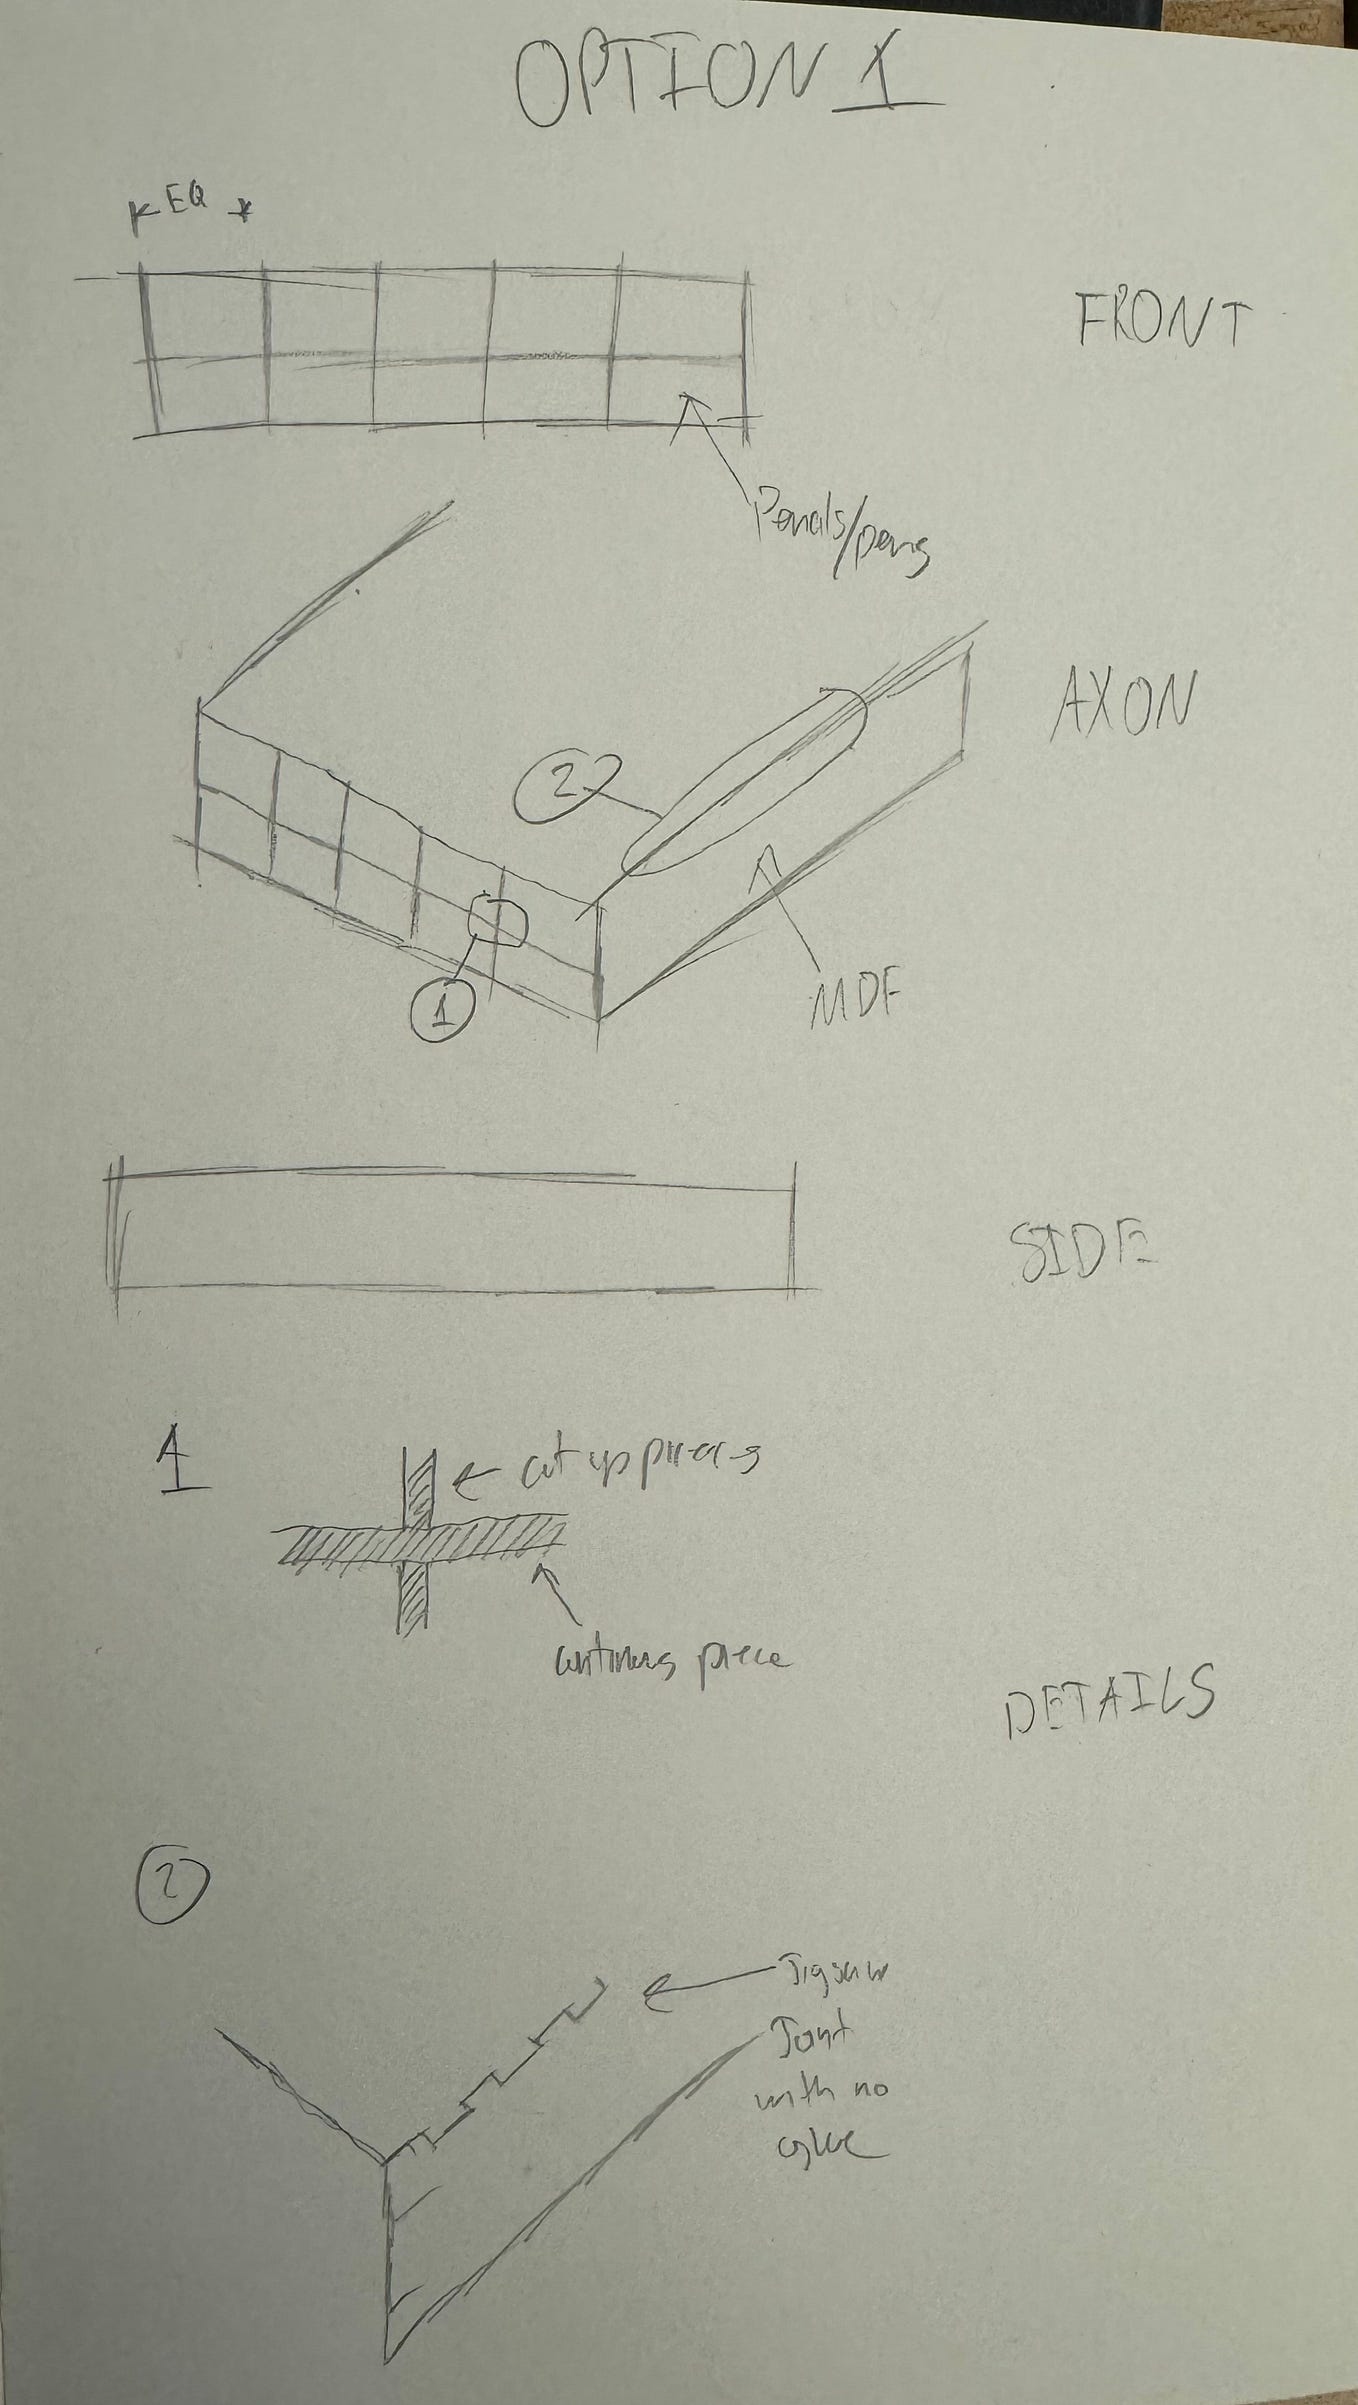 OPTION 1
EQ
FRONT
Pencils/pens
AXON
2
1
MDF
SIDE
1
cut up pieces
continuous piece
DETAILS
2
Jigsaw
Joint
with no
glue